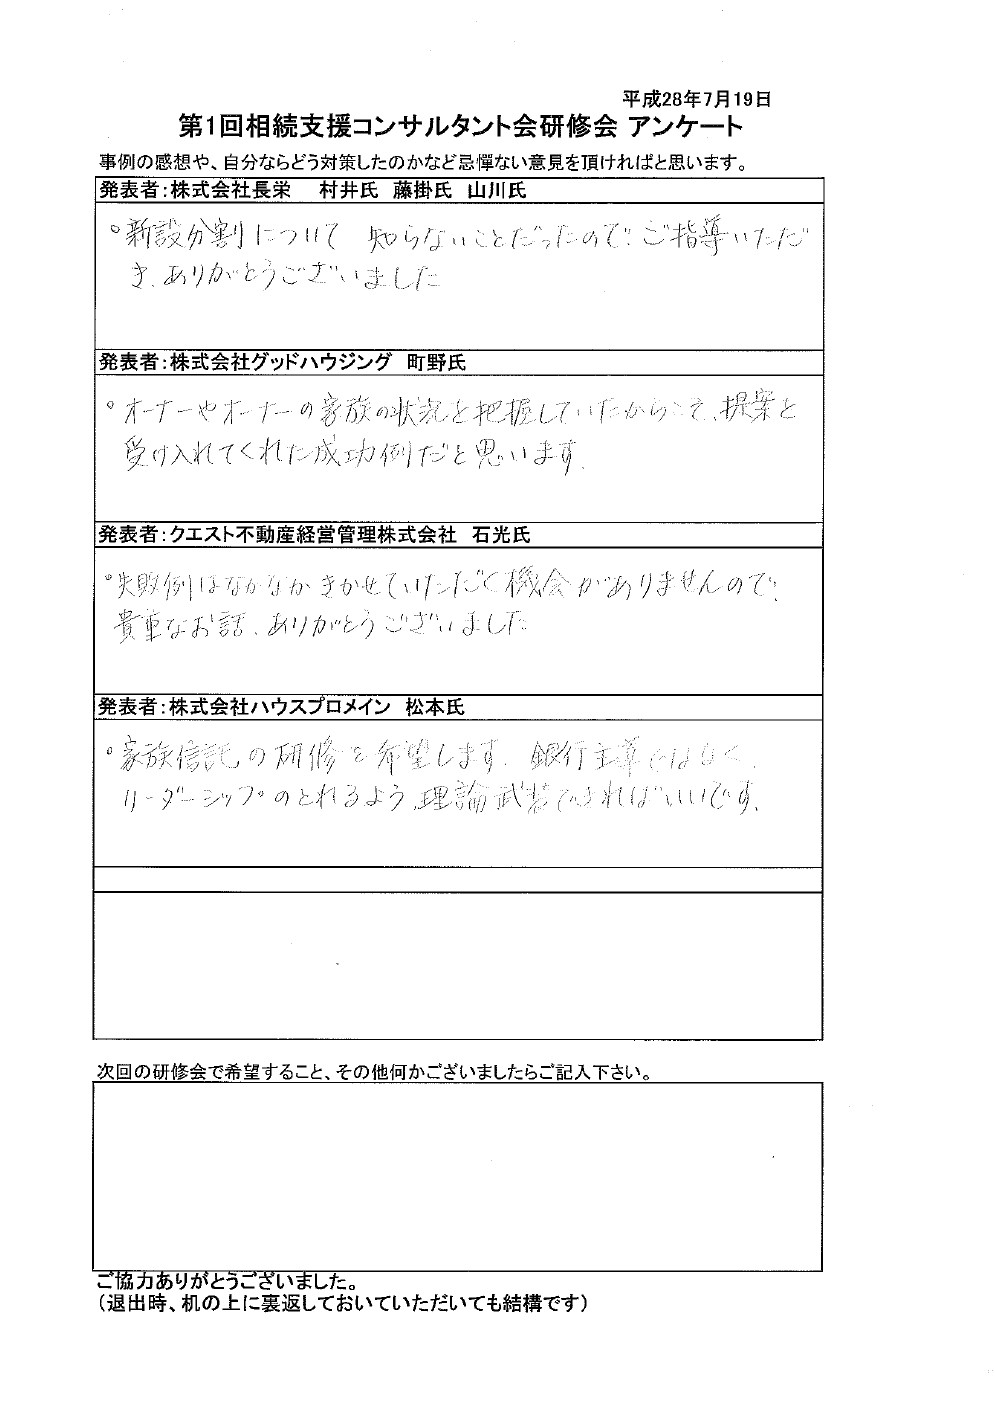 平成28年7月19日
第1回相続支援コンサルタント会研修会 アンケート
事例の感想や、自分ならどう対策したのかなど忌憚ない意見を頂ければと思います。
発表者：株式会社長栄　村井氏　藤掛氏　山川氏
○新設分割について　知らないことだったので、ご指導いただ
き、ありがとうございました
発表者：株式会社グッドハウジング　町野氏
○オーナーやオーナーの家族の状況を把握していたからこそ、提案を
受け入れてくれた成功例だと思います。
発表者：クエスト不動産経営管理株式会社　石光氏
○失敗例はなかなかきかせていただく機会がありませんので、
貴重なお話、ありがとうございました
発表者：株式会社ハウスプロメイン　松本氏
○家族信託の研修を希望します。銀行主導ではなく、
リーダーシップのとれるよう、理論武装できればいいです。
次回の研修会で希望すること、その他何かございましたらご記入下さい。
ご協力ありがとうございました。
（退出時、机の上に裏返しておいていただいても結構です）